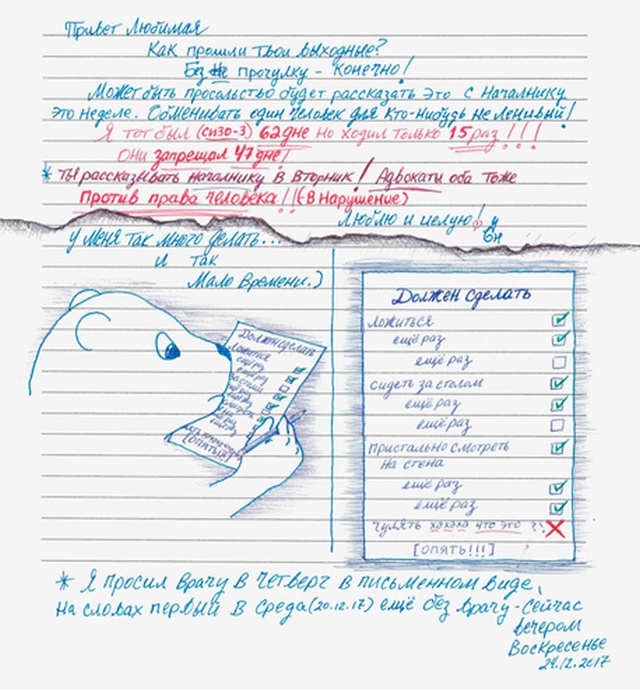 Привет Любимая
Как прошли твои выходные?
Без прогулку – конечно!
Может быть просольство будет рассказать это с началнику
это неделе. Обменивать один человек для кто-нибудь не ленивый!
Я тот был (сизо-3) 62 дне но ходил только 15 раз!!!
Они запрещал 47 дне!
* ты рассказывать началнику в Вторник! Адвокаты оба тоже
Против права человека!! (-В Нарушение)
Люблю и целую!
у меня так много делать...
и так
Мало Времени.)
Должен сделать
ложиться
ещё раз
ещё раз
сидеть за столом
ещё раз
ещё раз
пристально смотреть
на стена
ещё раз
ещё раз
гулять хахаха что это ?!
[опять!!!]
Должен сделать
ложиться
ещё раз
ещё раз
[опять!!!]
* Я просил врачу в четверг в письменном виде,
на словах первый в среда (20.12.17) ещё без врачу – сейчас
вечером
Воскресенье
24.12.2017